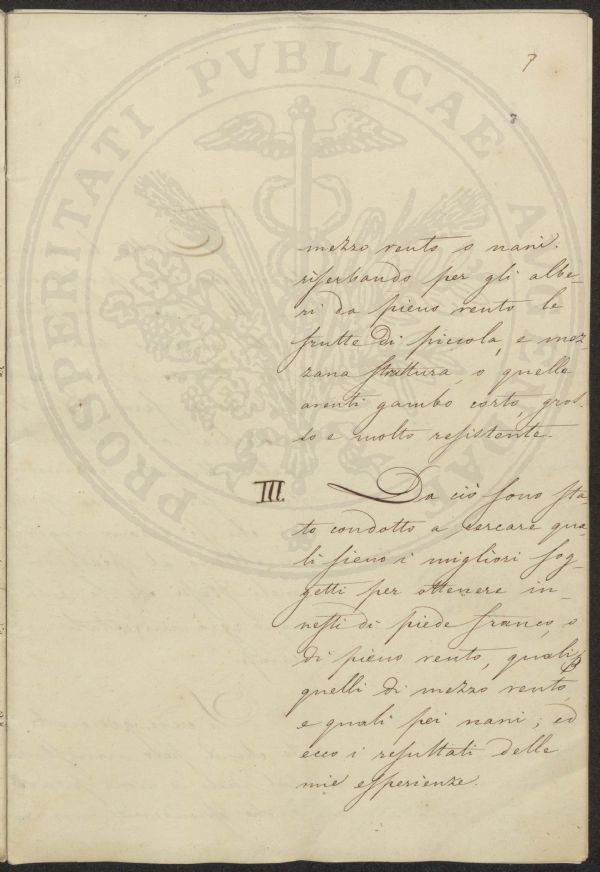 7
7
mezzo vento o nani:
riserbando per gli albe-
ri da pieno vento le
frutte di piccola, e mez-
zana struttura, o quelle
aventi gambo corto, gros-
so e molto resistente.
III. Da ciò sono sta-
to condotto a cercare qua-
li sieno i migliori sog-
getti per ottenere in-
nesti di piede franco, o
di pieno vento, quali
quelli di mezzo vento,
e quali pei nani; ed
ecco i resultati delle
mie esperienze.
PROSPERITATI PVBLICAE AVGENDAE